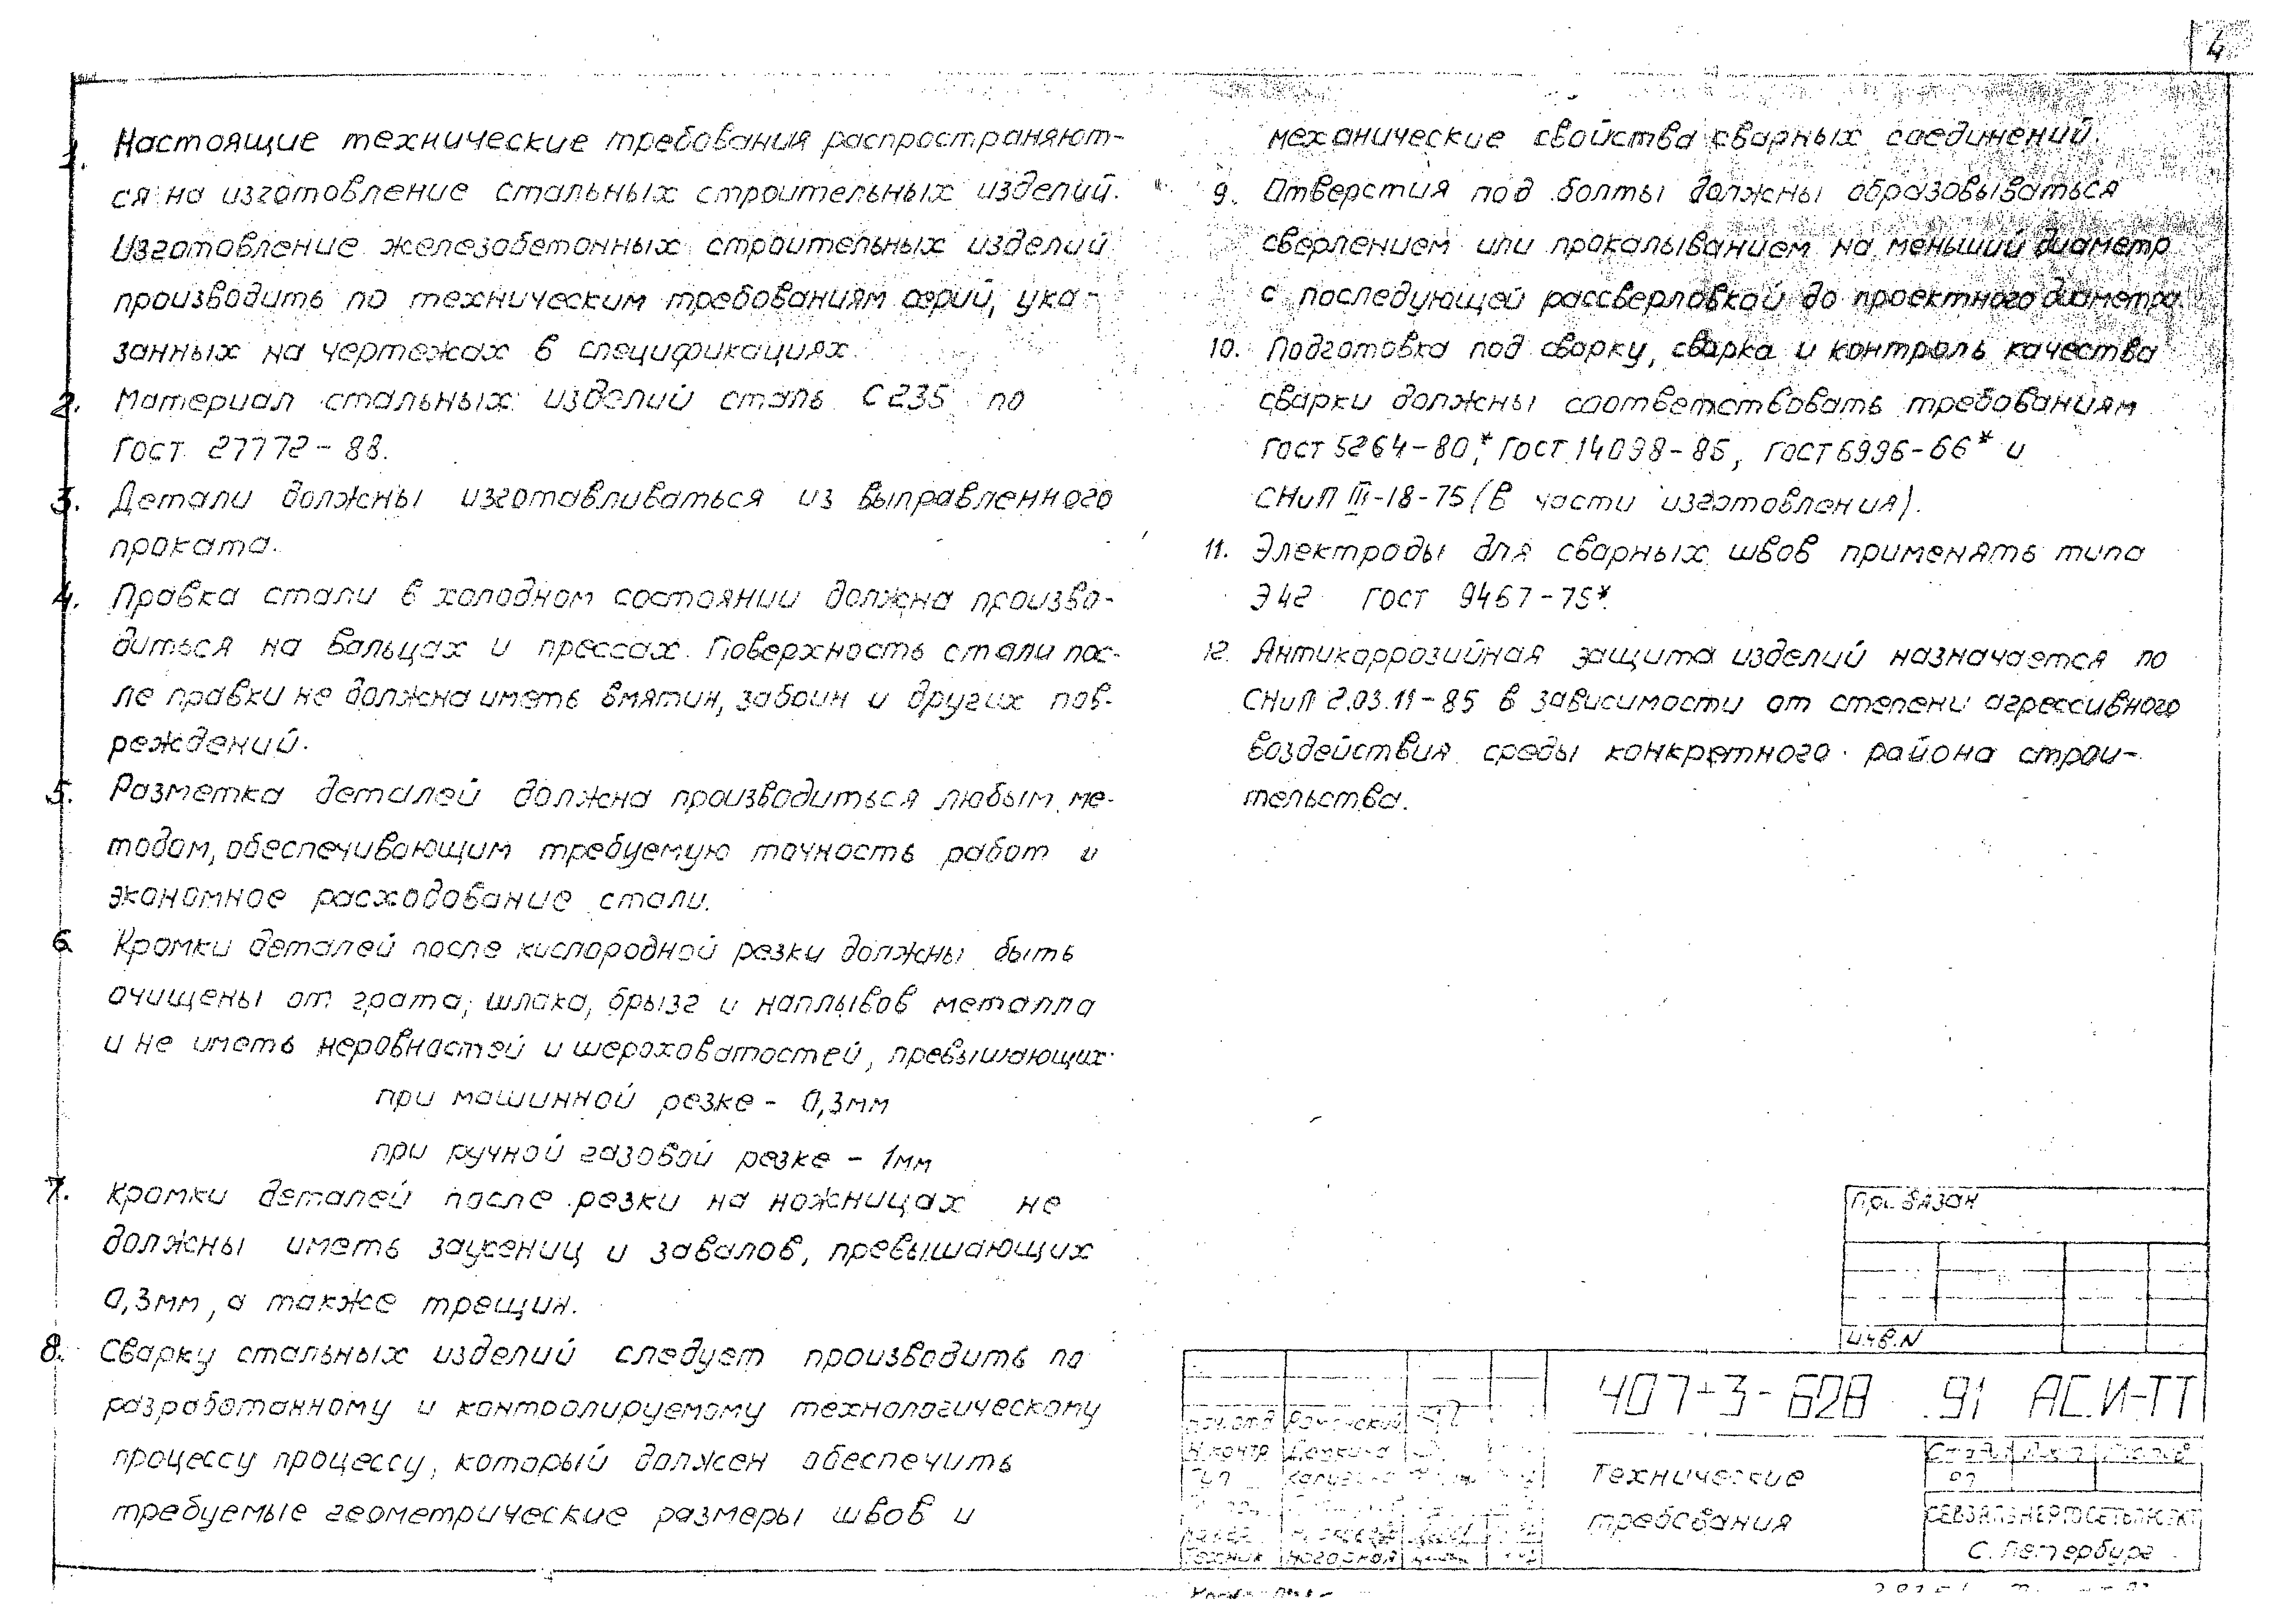 4
1. Настоящие технические требования распространяют-
ся на изготовление стальных строительных изделий.
Изготовление железобетонных строительных изделий
производить по техническим требованиям серий, ука-
занных на чертежах в спецификациях.
2. Материал стальных изделий сталь С235 по
ГОСТ 27772-88.
3. Детали должны изготавливаться из выправленного
проката.
4. Правка стали в холодном состоянии должна произво-
диться на вальцах и прессах. Поверхность стали пос-
ле правки не должна иметь вмятин, забоин и других пов-
реждений.
5. Разметка деталей должна производиться любым ме-
тодом, обеспечивающим требуемую точность работ и
экономное расходование стали.
6 Кромки деталей после кислородной резки должны быть
очищены от грата, шлака, брызг и наплывов металла
и не иметь неровностей и шероховатостей, превышающих
при машинной резке - 0,3мм
при ручной газовой резке - 1мм
7. Кромки деталей после резки на ножницах не
должны иметь заусениц и завалов, превышающих
0,3мм, а также трещин.
8. Сварку стальных изделий следует производить по
разработанному и контролируемому технологическому
процессу процессу, который должен обеспечить
требуемые геометрические размеры швов и
механические свойства сварных соединений.
9. Отверстия под болты должны образовываться
сверлением или прокалыванием на меньший диаметр
с последующей рассверловкой до проектного диаметра.
10. Подготовка под сварку, сварка и контроль качества
сварки должны соответствовать требованиям
ГОСТ 5264-80*, ГОСТ 14098-85, ГОСТ 6996-66* и
СНиП III-18-75 (в части изготовления).
11. Электроды для сварных швов применять типа
Э42 ГОСТ 9467-75*.
12. Антикоррозийная защита изделий назначается по
СНиП 2.03.11-85 в зависимости от степени агрессивного
воздействия среды конкретного района строи-
тельства.
Привязан
Инв.N
407-3-628 .91 АС.И-ТТ
Нач.отд Роменский
Н.контр
ГИП
Техник Нагорная
Технические
требования
Стадия Лист Листов
РП
СЕВЗАПЭНЕРГОСЕТЬПРОЕКТ
С. Петербург